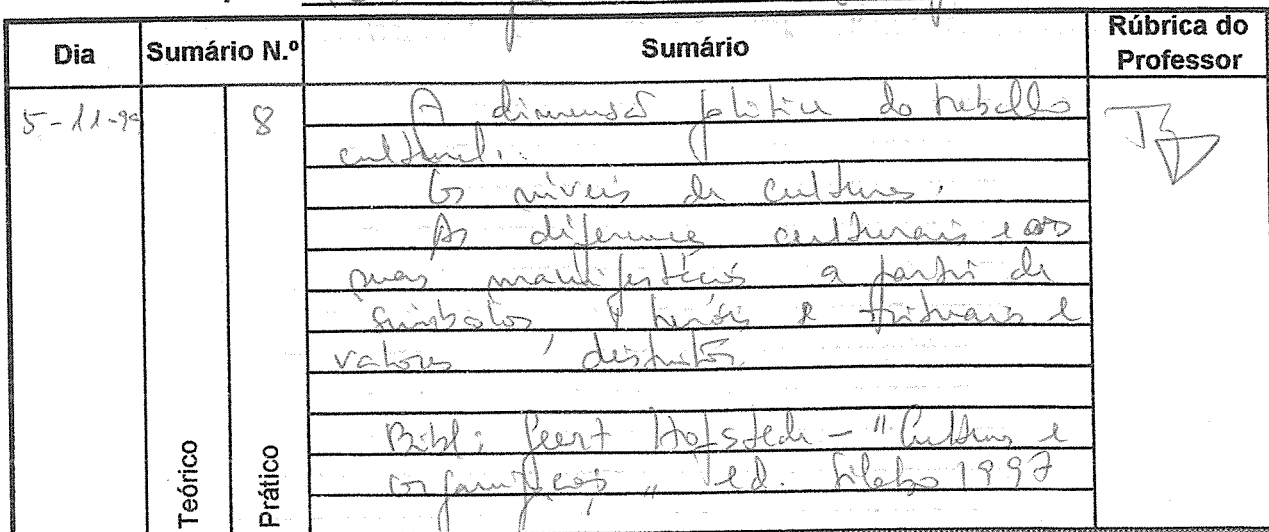 Dia Sumário N.º Sumário Rúbrica do Professor
5-11-99 8 A dimensão política do trabalho
cultural.
Os níveis de cultura.
As diferenças culturais e as
suas manifestações a partir de
símbolos, heróis e rituais e
valores distintos
Bibl: Geert Hofstede - "Culturas e
organizações" ed. Sílabo 1997
Teórico
Prático